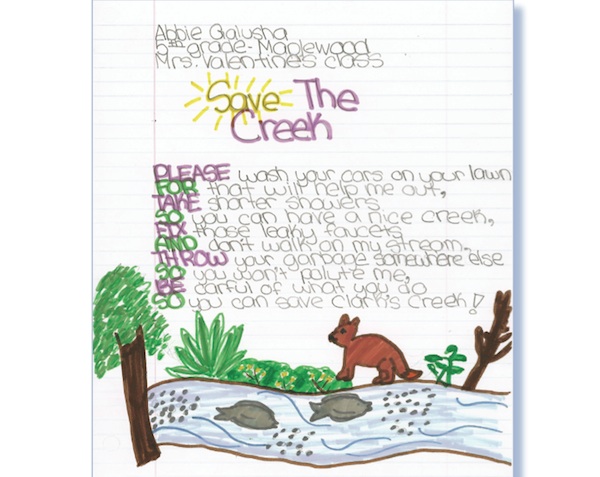 Abbie Galusha
5th grade- Maplewood
Mrs. Valentine's class
Save The
Creek
PLEASE wash your cars on your lawn
FOR that will help me out,
TAKE shorter showers
SO you can have a nice creek,
FIX those leaky faucets
AND don't walk on my stream.
THROW your garbage somewhere else
SO you won't polute me,
BE carful of what you do
SO you can save Clark's Creek!